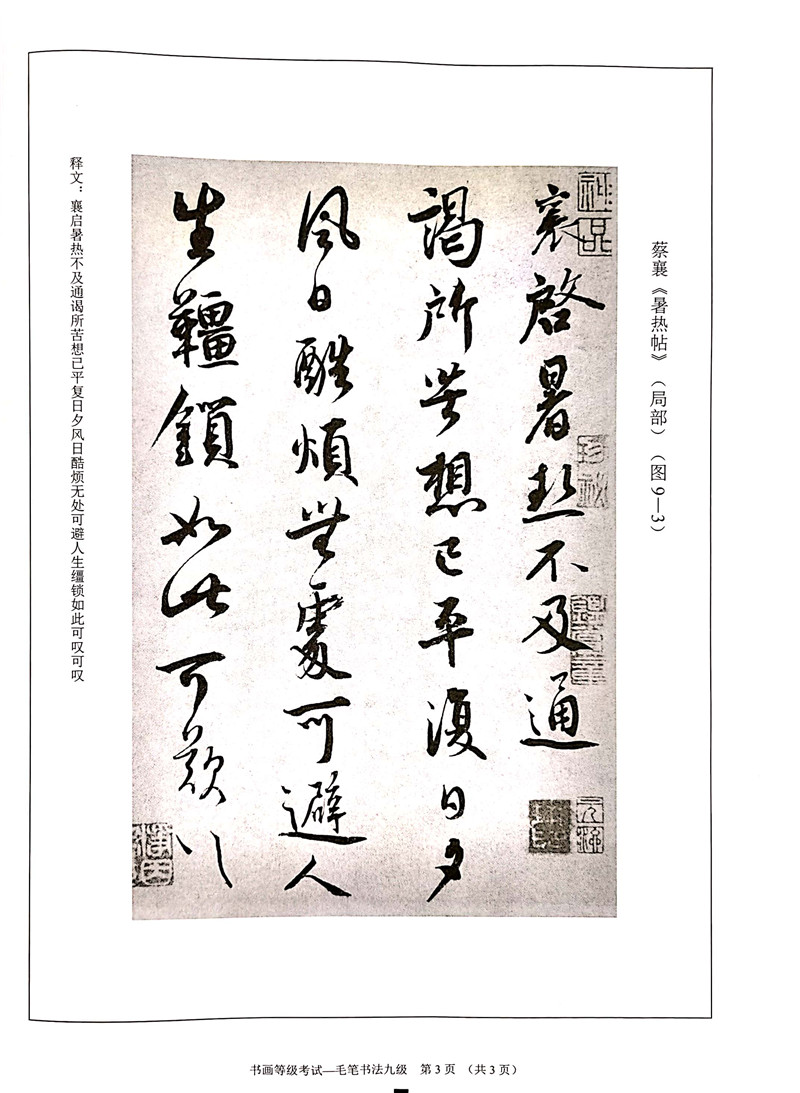 蔡襄《暑热帖》（局部）（图9—3）
襄啓暑熱不及通
謁所苦想已平復日夕
風日酷煩無處可避人
生韁鎖如此可歎〻
释文：襄启暑热不及通谒所苦想已平复日夕风日酷烦无处可避人生缰锁如此可叹可叹
书画等级考试—毛笔书法九级 第3页（共3页）